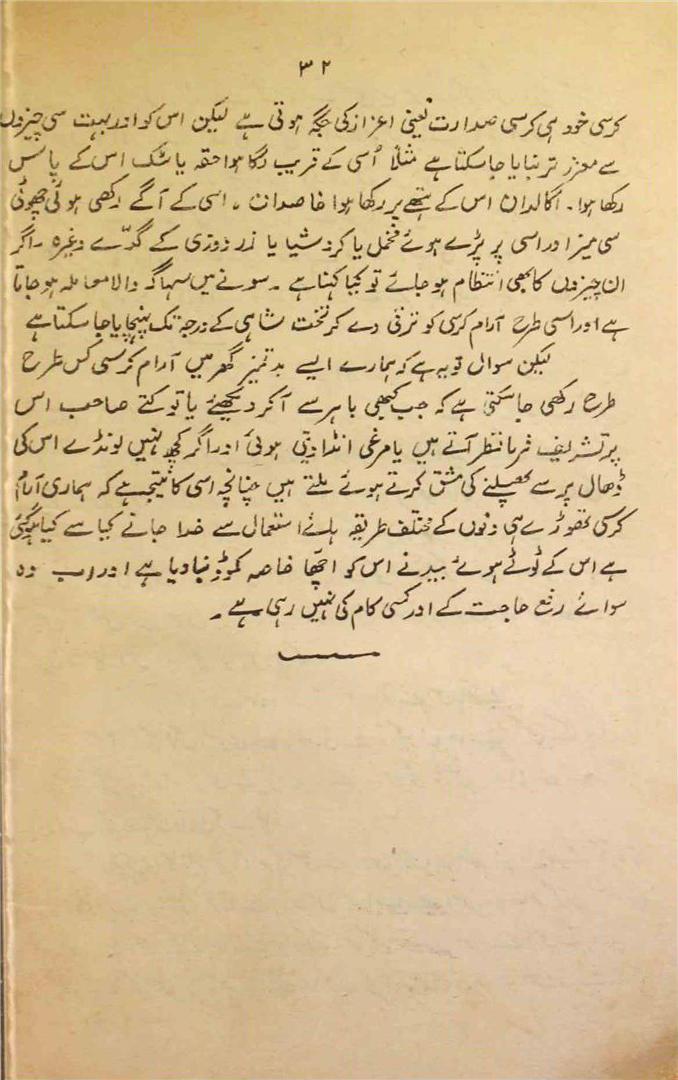 ۳۲
کرسی خود ہی کرسی صدارت یعنی اعزاز کی جگہ ہوتی ہے لیکن اس کو اور بہت سی چیزوں
سے معزز تر بنایا جا سکتا ہے مثلاً اُسی کے قریب لگا ہوا حقہ یا مشک اس کے پاس
رکھا ہوا۔ اگالدان اس کے ہتھے پر رکھا ہوا خاصدان ۔ اسی کے آگے رکھی ہوئی چھوٹی
سی میز اور اسی پر پڑے ہوئے مخمل یا کروشیا یا زر دوزی کے گدّے وغیرہ ۔ اگر
ان چیزوں کا بھی انتظام ہو جائے تو کیا کہنا ہے ۔ سونے میں سہاگہ والا معاملہ ہو جاتا
ہے اور اسی طرح آرام کرسی کو ترقی دے کر تخت شاہی کے درجہ تک پہنچایا جا سکتا ہے
لیکن سوال تو یہ ہے کہ ہمارے ایسے بدتمیز گھر میں آرام کرسی کس طرح
طرح رکھی جا سکتی ہے کہ جب کبھی باہر سے آ کر دیکھئے یا تو کتے صاحب اس
پر تشریف فرما نظر آتے ہیں یا مرغی انڈا دیتی ہوئی اور اگر کچھ نہیں لونڈے اس کی
ڈھال پر سے پھسلنے کی مشق کرتے ہوئے ملتے ہیں چنانچہ اسی کا نتیجہ ہے کہ ہماری آرام
کرسی تھوڑے ہی دنوں کے مختلف طریقہ ہائے استعمال سے خدا جانے کیا سے کیا ہو گئی
ہے اس کے ٹوٹے ہوئے بید نے اس کو اچھا خاصہ کموڈ بنا دیا ہے اور اب وہ
سوائے رفع حاجت کے اور کسی کام کی نہیں رہی ہے ۔